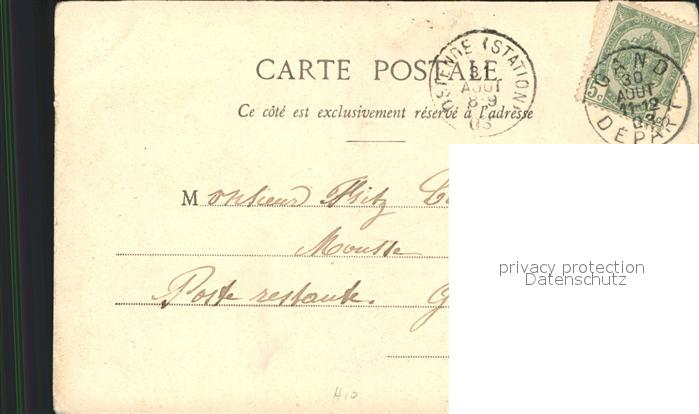 CARTE POSTALE
Ce côté est exclusivement réservé à l'adresse
OSTENDE (STATION)
31
AOUT
8-9
03
GAND
30
AOUT
11-12
03
DÉPART
5c
Monsieur Fritz
Mousse
Poste restante. G
privacy protection
Datenschutz
H10